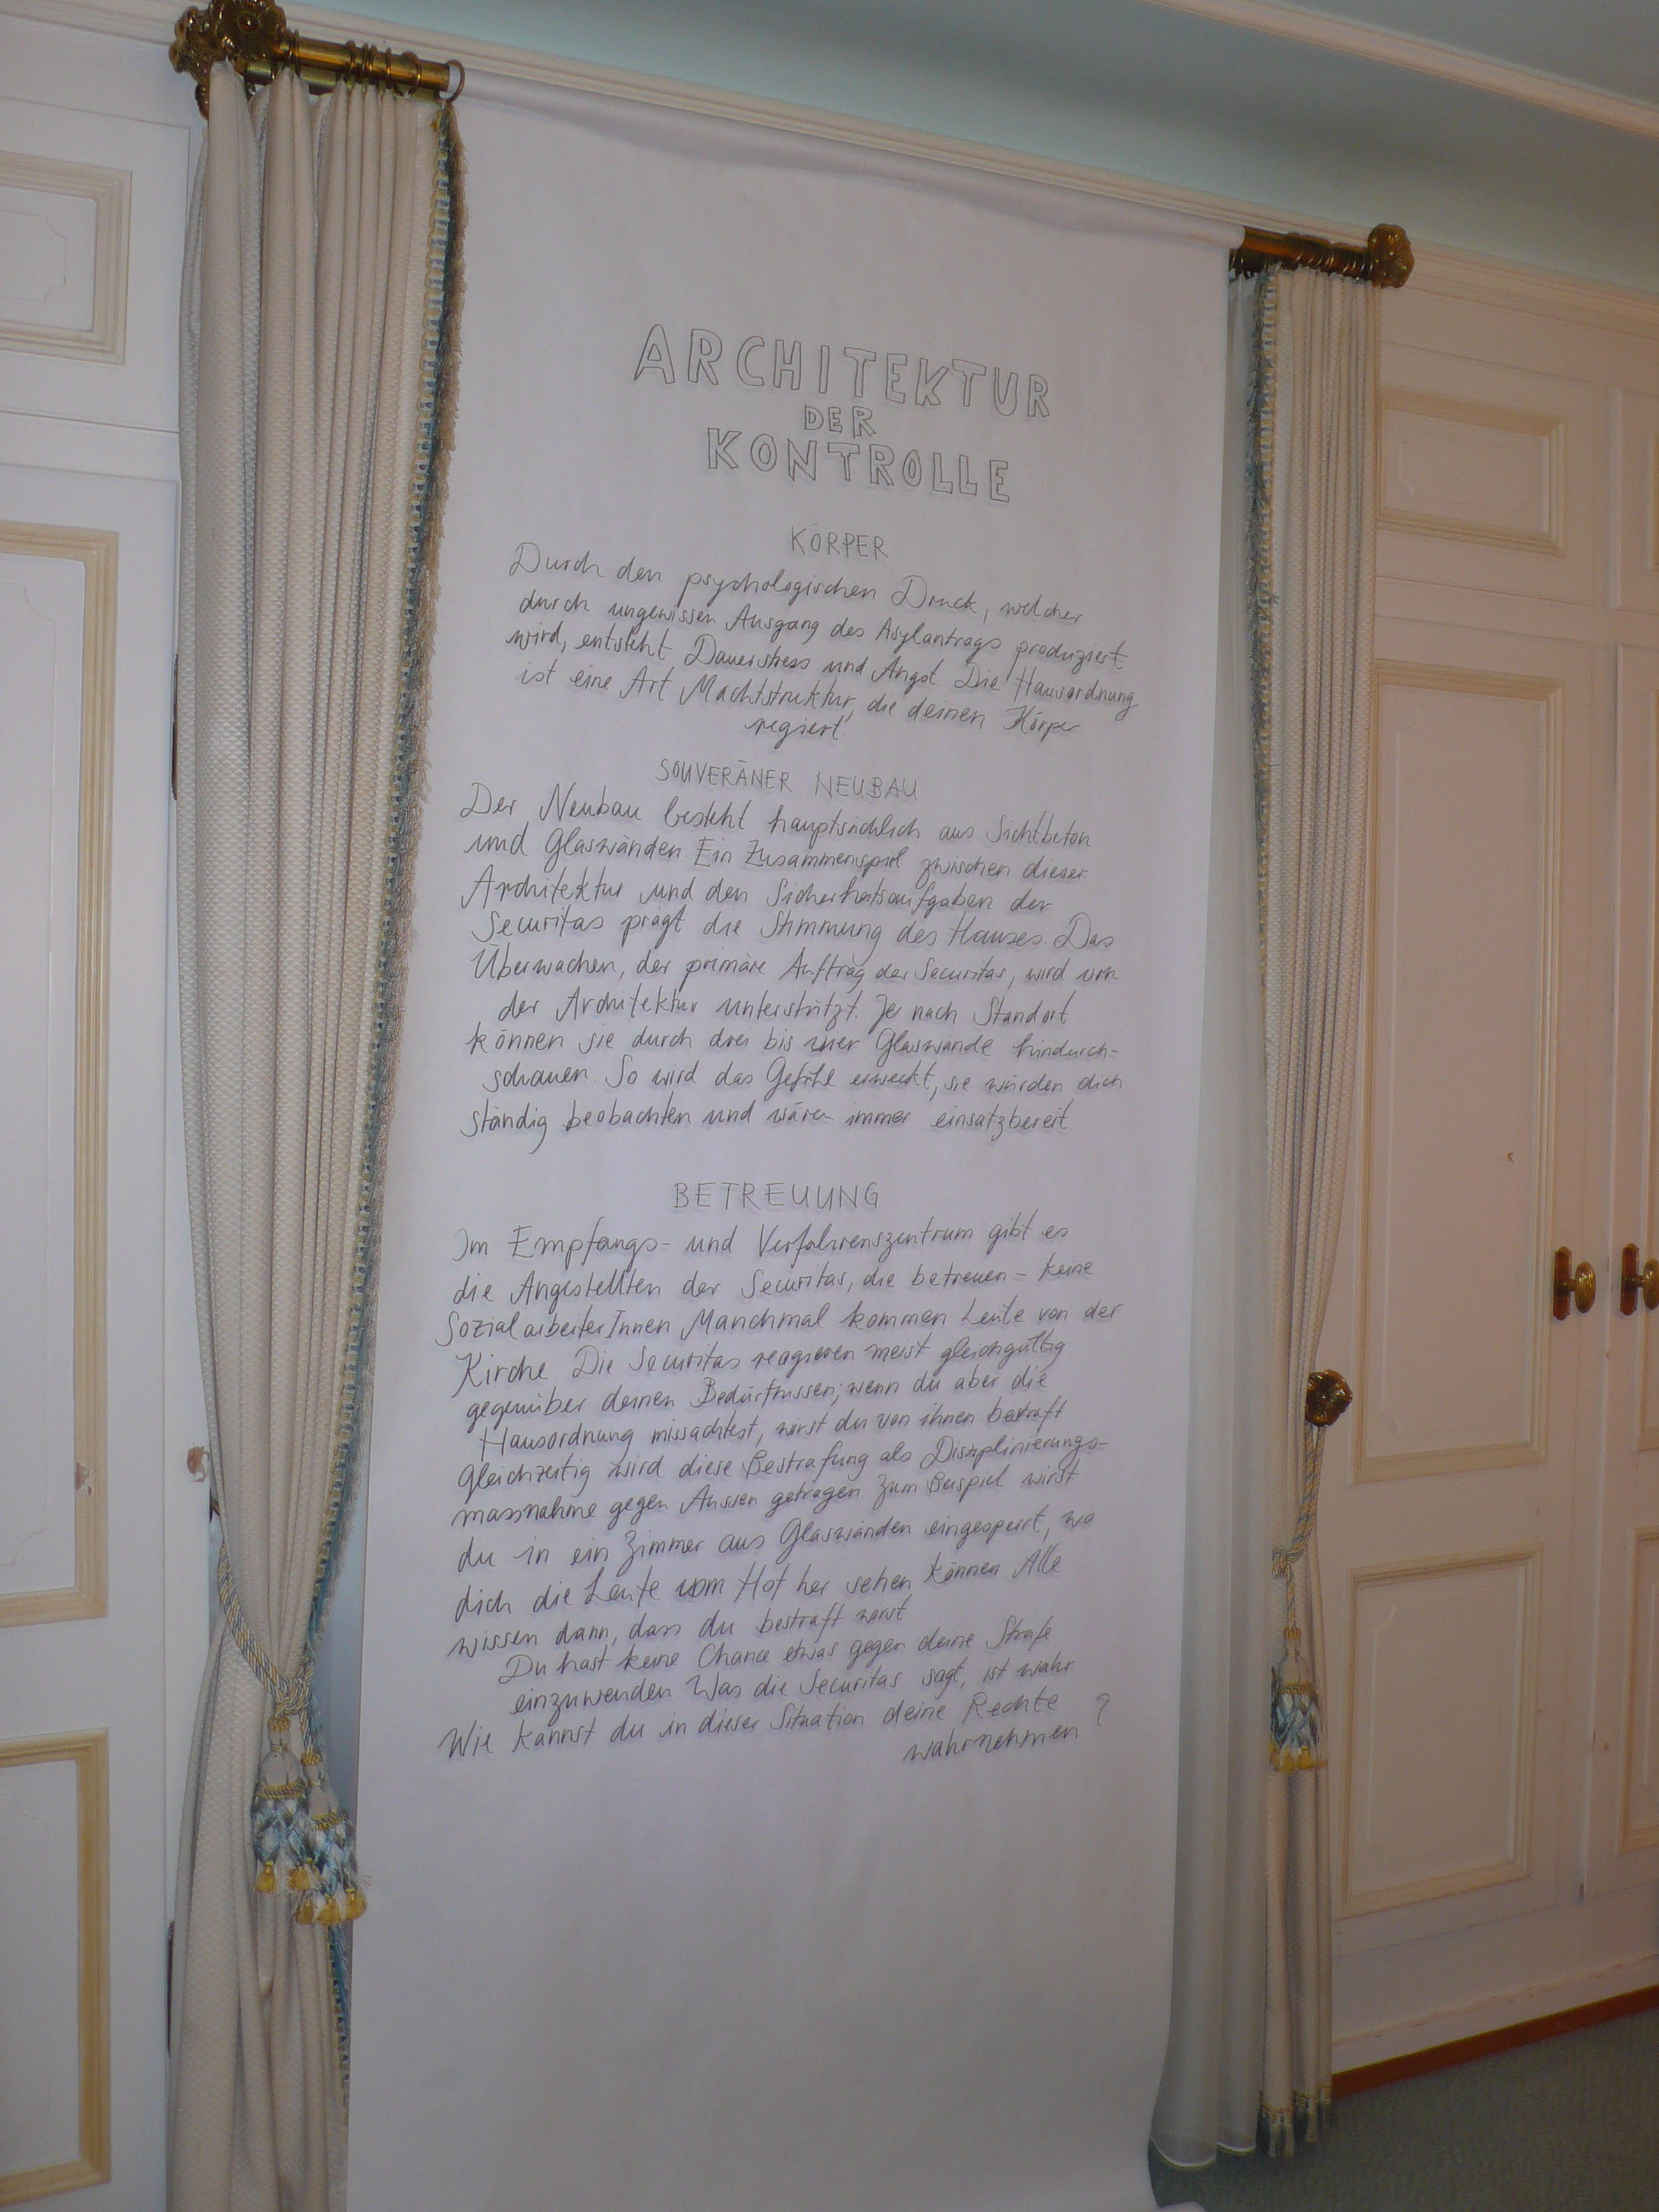 ARCHITEKTUR
DER
KONTROLLE
KÖRPER
Durch den psychologischen Druck, welcher
durch ungewissen Ausgang des Asylantrags produziert
wird, entsteht Dauerstress und Angst. Die Hausordnung
ist eine Art Machtstruktur, die deinen Körper
regiert.
SOUVERÄNER NEUBAU
Der Neubau besteht hauptsächlich aus Sichtbeton
und Glaswänden. Ein Zusammenspiel zwischen dieser
Architektur und den Sicherheitsaufgaben der
Securitas prägt die Stimmung des Hauses. Das
Überwachen, der primäre Auftrag der Securitas, wird von
der Architektur unterstützt. Je nach Standort
können sie durch drei bis vier Glaswände hindurch-
schauen. So wird das Gefühl erweckt, sie würden dich
ständig beobachten und wären immer einsatzbereit.
BETREUUNG
Im Empfangs- und Verfahrenszentrum gibt es
die Angestellten der Securitas, die betreuen - keine
SozialarbeiterInnen. Manchmal kommen Leute von der
Kirche. Die Securitas reagieren meist gleichgültig
gegenüber deinen Bedürfnissen; wenn du aber die
Hausordnung missachtest, wirst du von ihnen bestraft.
Gleichzeitig wird diese Bestrafung als Disziplinierungs-
massnahme gegen Aussen getragen. Zum Beispiel wirst
du in ein Zimmer aus Glaswänden eingesperrt, wo
dich die Leute vom Hof her sehen können. Alle
wissen dann, dass du bestraft wirst.
Du hast keine Chance etwas gegen deine Strafe
einzuwenden. Was die Securitas sagt, ist wahr.
Wie kannst du in dieser Situation deine Rechte
wahrnehmen?